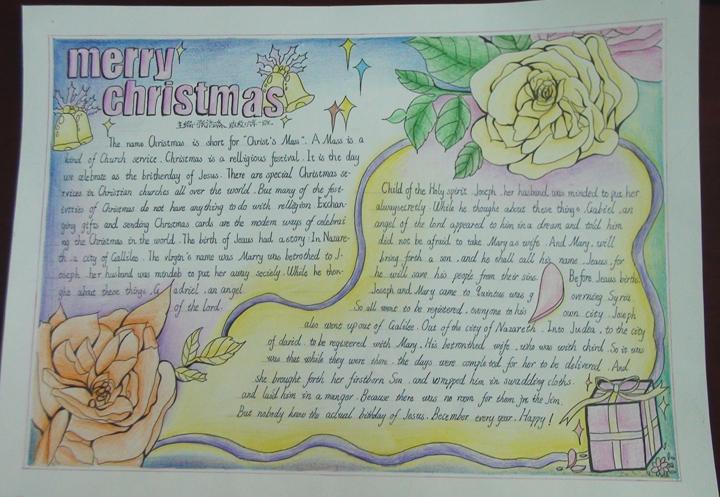 merry
christmas
The name Christmas is short for "Christ's Mass". A Mass is a
kind of Church service. Christmas is a relligious festival. It is the day
we celebrate as the britherday of Jesus. There are special Christmas se-
rvices in Christian churches all over the world. But many of the fest-
ivities of Christmas do not have anything to do with relligion. Exchan-
ging gifts and sending Christmas cards are the modern ways of celebrat
ng the Christmas in the world. The birth of Jesus had a story: In Nazare-
th a city of Gallilee. The virgin's name was Marry was betrothed to J-
oseph. her husband was mindeb to put her awny society. While he thou-
ght about these things. G adriel. an angel
of the lord.
Child of the Holy spirit. Joseph. her husband was minded to put her
alwaysecretly. While he thought about these things. Gabriel. an
angel of the lord appeared to him in a dream and told him
did not be afraid to take Mary as wife. And Mary. will
bring forth a son. and he shall call his name. Jesus, for
he will save his people from their sins. Before Jesus births.
Joseph and Mary came to Quirinius was g overning Syria
So all went to be registered. everyone to his own city. Joseph
also went up out of Galilee. Out of the city of Nazareth. Into Judea. to the city
of david. to be registered with Mary. His betrothed wife. who was with child. So it was
was that while they were there. the days were completed for her to be delivered. And
she brought forth her firstborn Son. and wrapped him in swaddling cloths.
and laid him in a manger. Because there was no room for them in the
But nobody know the actual birthday of Jesus. December every year. Happy!